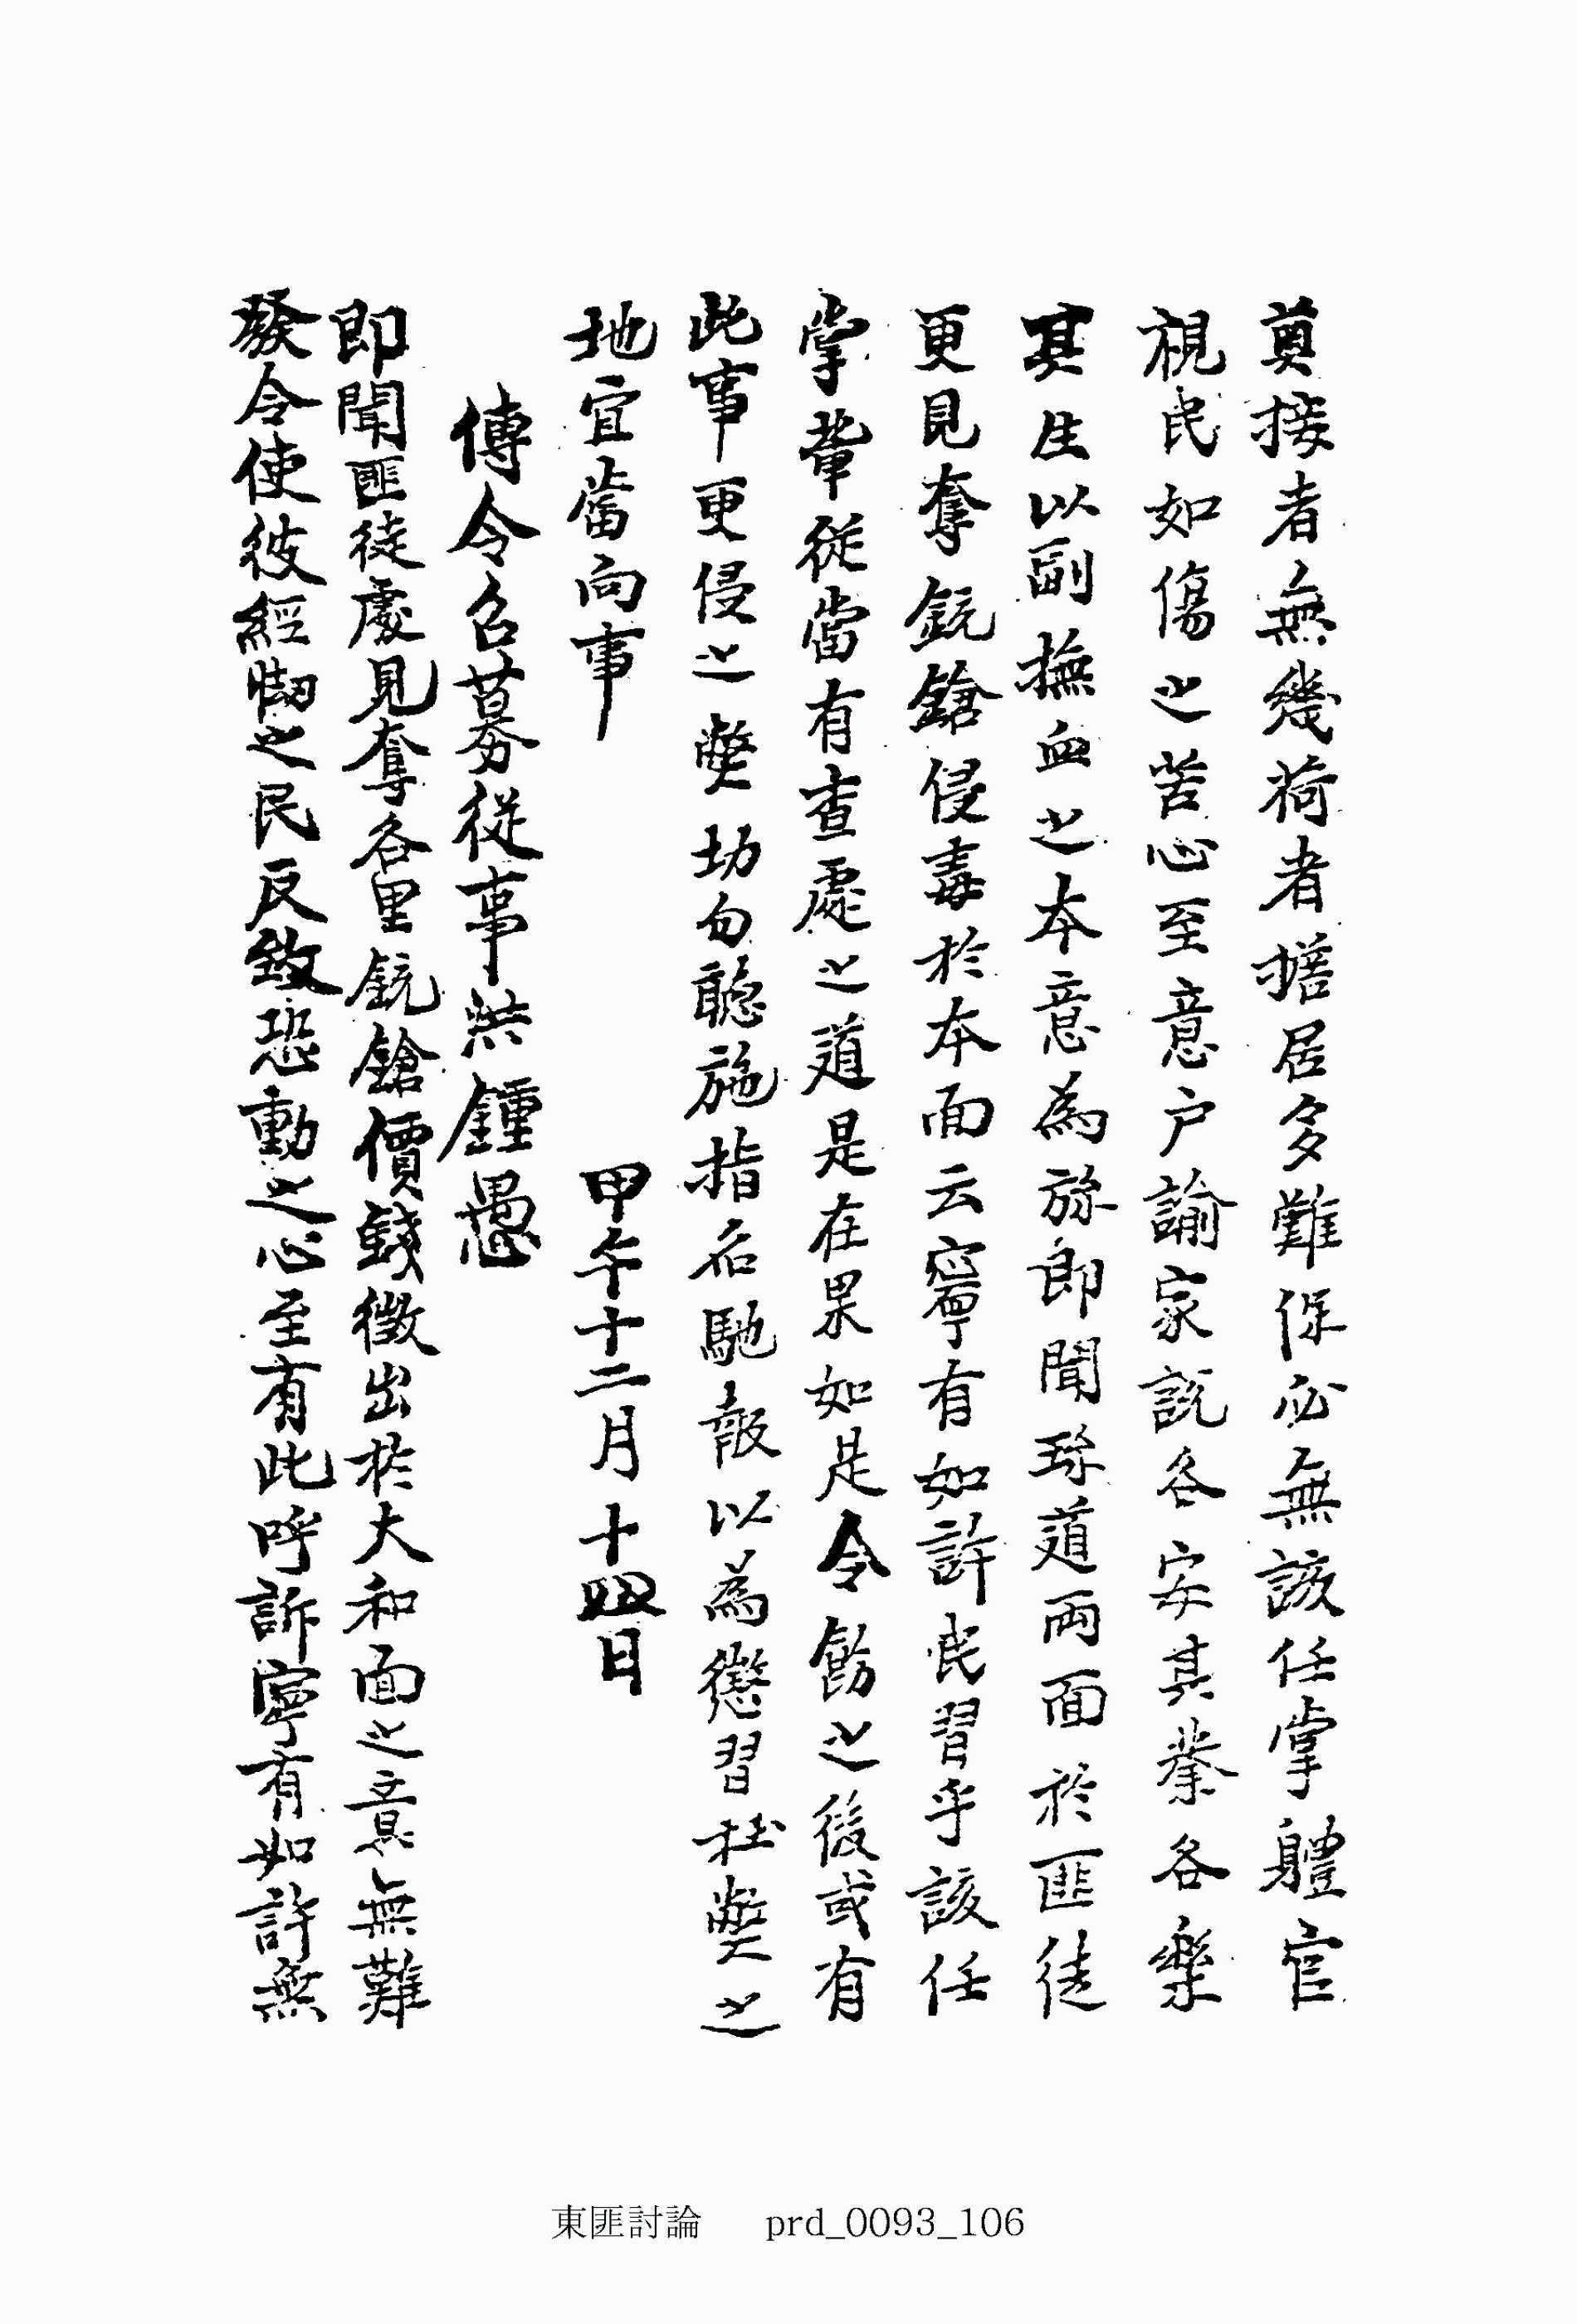 奠接者無幾荷者擔居多難保必無該任掌體官
視民如傷之苦心至意户諭家說各安其業各樂
其生以副撫血之本意為旀即聞珎道両面於匪徒
更見奪銃鎗侵毒於本面云寧有如許民習乎該任
掌輩從當有査處之道是在果如是令飭之後或有
此事更侵之弊切勿聽施指名馳報以為懲習杜弊之
地宜當向事 甲午十二月十四日
傳令召募從事洪鍾愚
即聞匪徒處見奪各里銃鎗價錢徵出於大和面之意無難
發令使彼經㤼之民反致恐動之心至有此呼訴寧有如許無
東匪討論 prd_0093_106